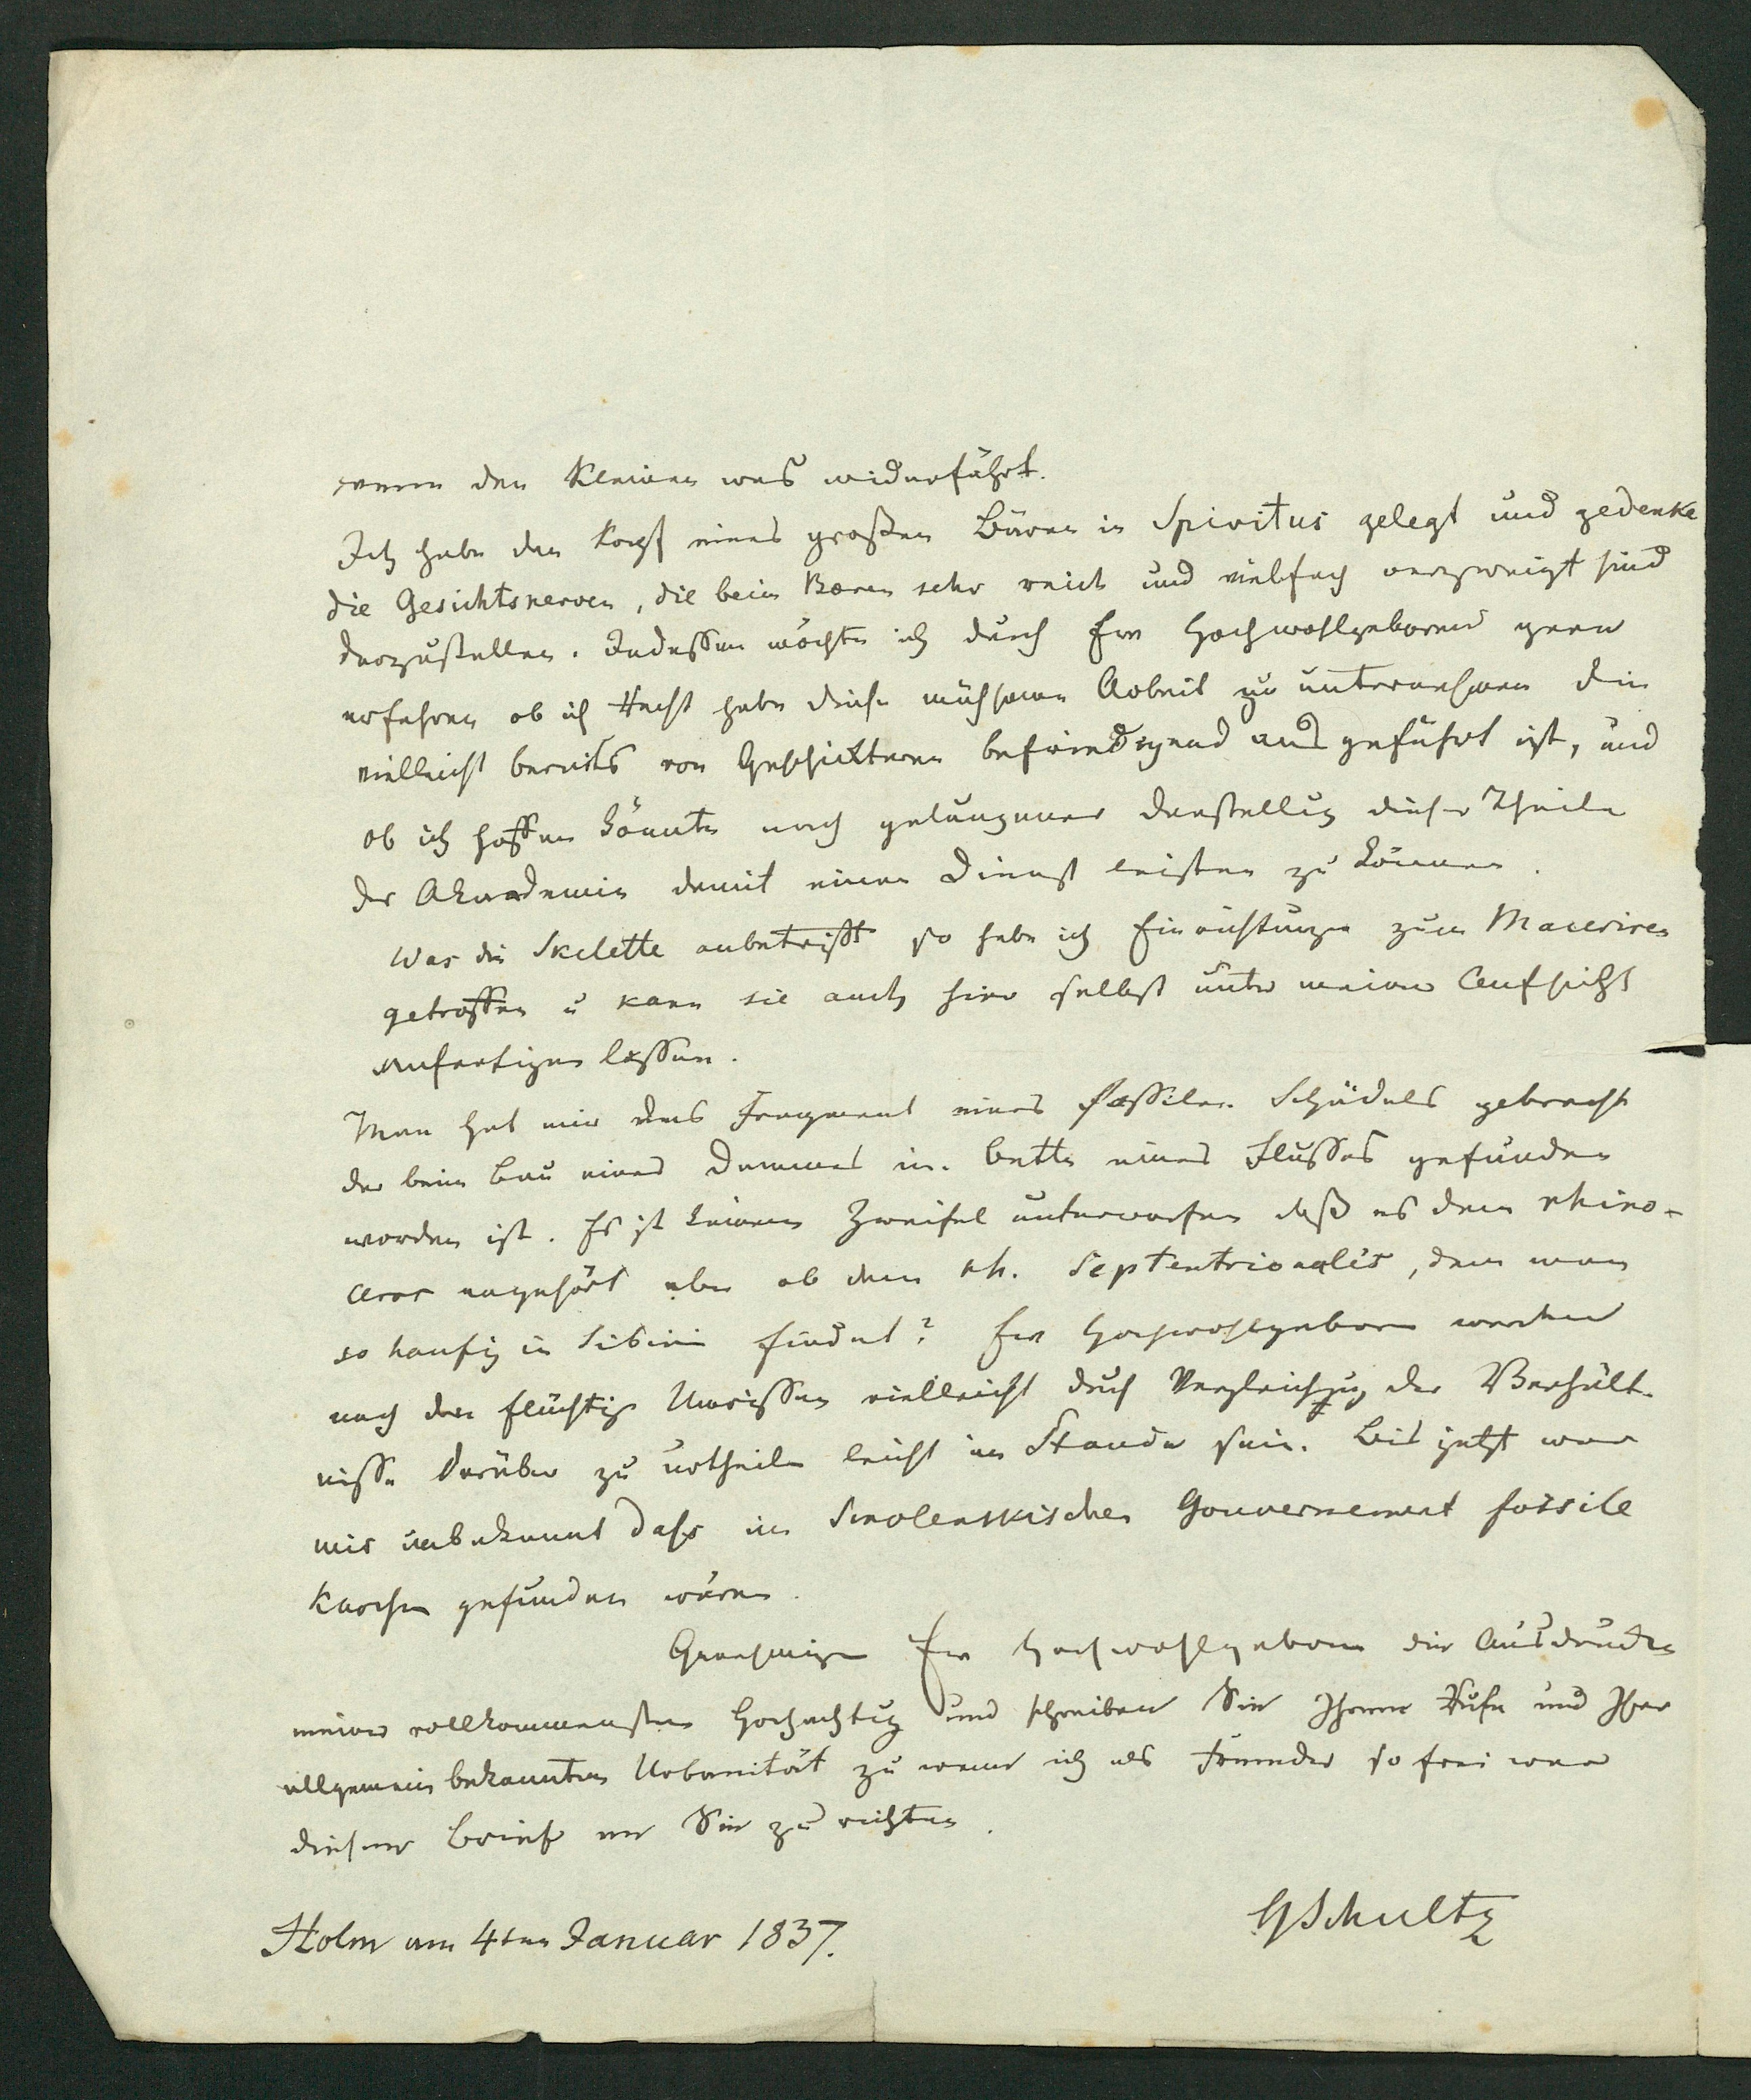 wenn den Kleinen was widerfährt.
Ich habe den Kopf eines großen Bären in Spiritus gelegt und gedenke
die Gesichtsnerven, die beim Baren sehr reich und vielfach verzweigt sind
darzustellen. Indessen möchte ich durch Ew Hochwohlgeboren gern
erfahren ob ich Recht habe diese mühsame Arbeit zu unternehmen die
vielleicht bereits von Geschickteren befriedigend ausgeführt ist, und
ob ich hoffen könnte nach gelungener Darstellung dieser Theile
der Akademie damit einen Dienst leisten zu können.
Was die Skelette anbetrifft so habe ich Einrichtungen zum Maceriren
getroffen u kann sie auch hier selbst unter meiner Aufsicht
anfertigen lassen.
Man hat mir das Fragment eines fossilen Schädels gebracht
der beim Bau eines Dammes im Bette eines Flusses gefunden
worden ist. Es ist keinem Zweifel unterworfen daß es dem rhino-
ceros angehört aber ob dem rh. septentrionalis, dem man
so haufig in Sibirien findet? Ew Hochwohlgeboren werden
nach den flüchtigen Umrissen vielleicht durch Vergleichung der Verhält-
nisse darüber zu urtheilen leicht im Stande sein. Bis jetzt war
mir unbekannt dass im Smolenskischen Gouvernement fossile
Knochen gefunden wären.
Genehmigen Ew Hochwohlgeboren die Ausdrücke
meiner vollkommensten Hochachtung und schreiben Sie Ihrem Rufe und Ihrer
allgemein bekannten Urbanität zu wenn ich als Fremder so frei war
diesen Brief an Sie zu richten.
GSchultz
Holm am 4ten Januar 1837.